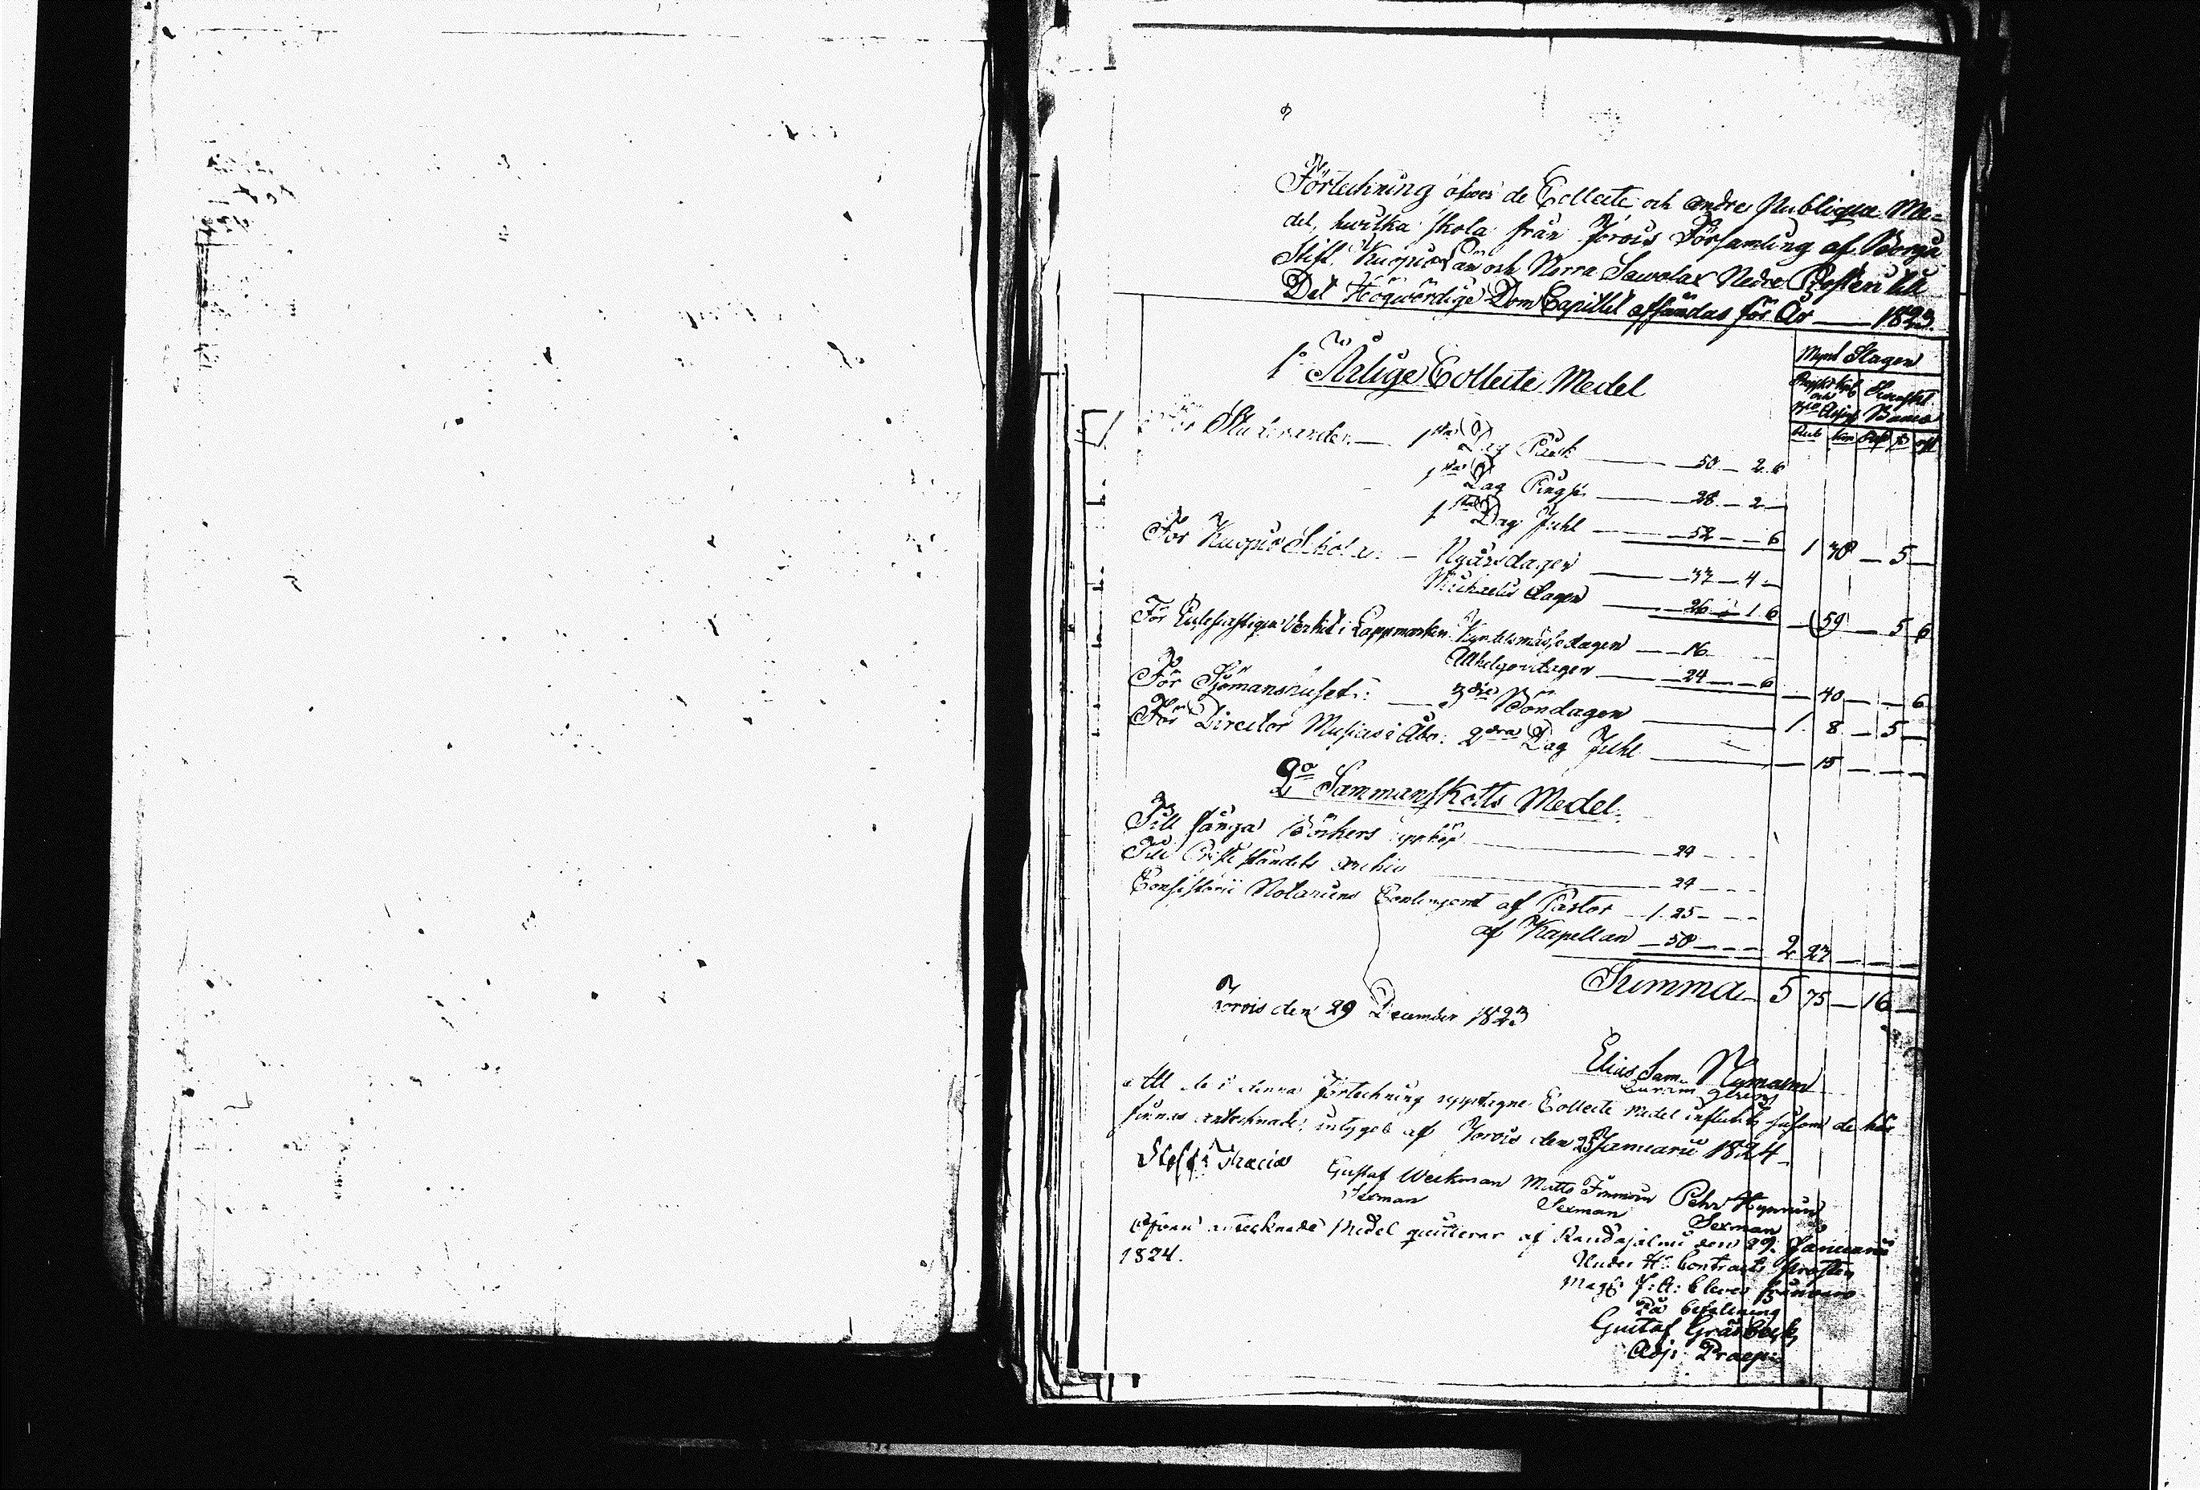 Förteckning öfver de Collecte och andre Publique Me=
del, hvilka skola från Jorois Församling af Borgå
Stift, Kuopio Län och Norra Sawolax Nedre Prosteri till
Det Högwördige Dom Capitlet afsändas för År — 1823.
Mynt Slagen
1° Årlige Collecte Medel
Rub Kop
Studerander — 1sta Dag Påsk — 50 — 2. 6
1sta Dag Pingst — 28 — 2 —
1sta Dag Juhl — 52 — — 6 1 30 — 5 —
För Kuopio Schola: — Nyårsdagen — 33 — 4 —
Michaelis Dagen — 26 — 1 6 — 59 — 5 6
För Ecclesiastique Verket i Lappmarken Kyndelsmässodagen — 16
Allhelgonadagen — 24 — — 6 — 40 — — 6
För Sjömanshuset: — 3die Böndagen — 1. 8 — 5 —
För Director Musices i Åbo: 2dra Dag Juhl — 15 — — —
2° Sammanskotts Medel.
Till fånga Böckers uppköp — 24 — —
Till Preste ståndets Archiv — 24 — —
Consistorii Notariens Contingent af Pastor — 1. 25 — — —
af Kapellan — 50 — — — 2 23 — — —
Summa — 5 75 — 16 —
Jorois den 29 December 1823
Elias Sam. Nyman
Att de i denna Förteckning upptagne Collecte medel influtit såsom de här
finnas antecknade, intygas af Jorois den 25 Januarii 1824 —
Gustaf Weckman Matts Pehr
Sexman Sexman Sexman
antecknade Medel quitterar af Randasalmi den 29. Januarii
1824.
Under H: Contracts Prosten
Mag: J: A: frånvaro
På befallning
Gustaf Gråsbeck
Adj: